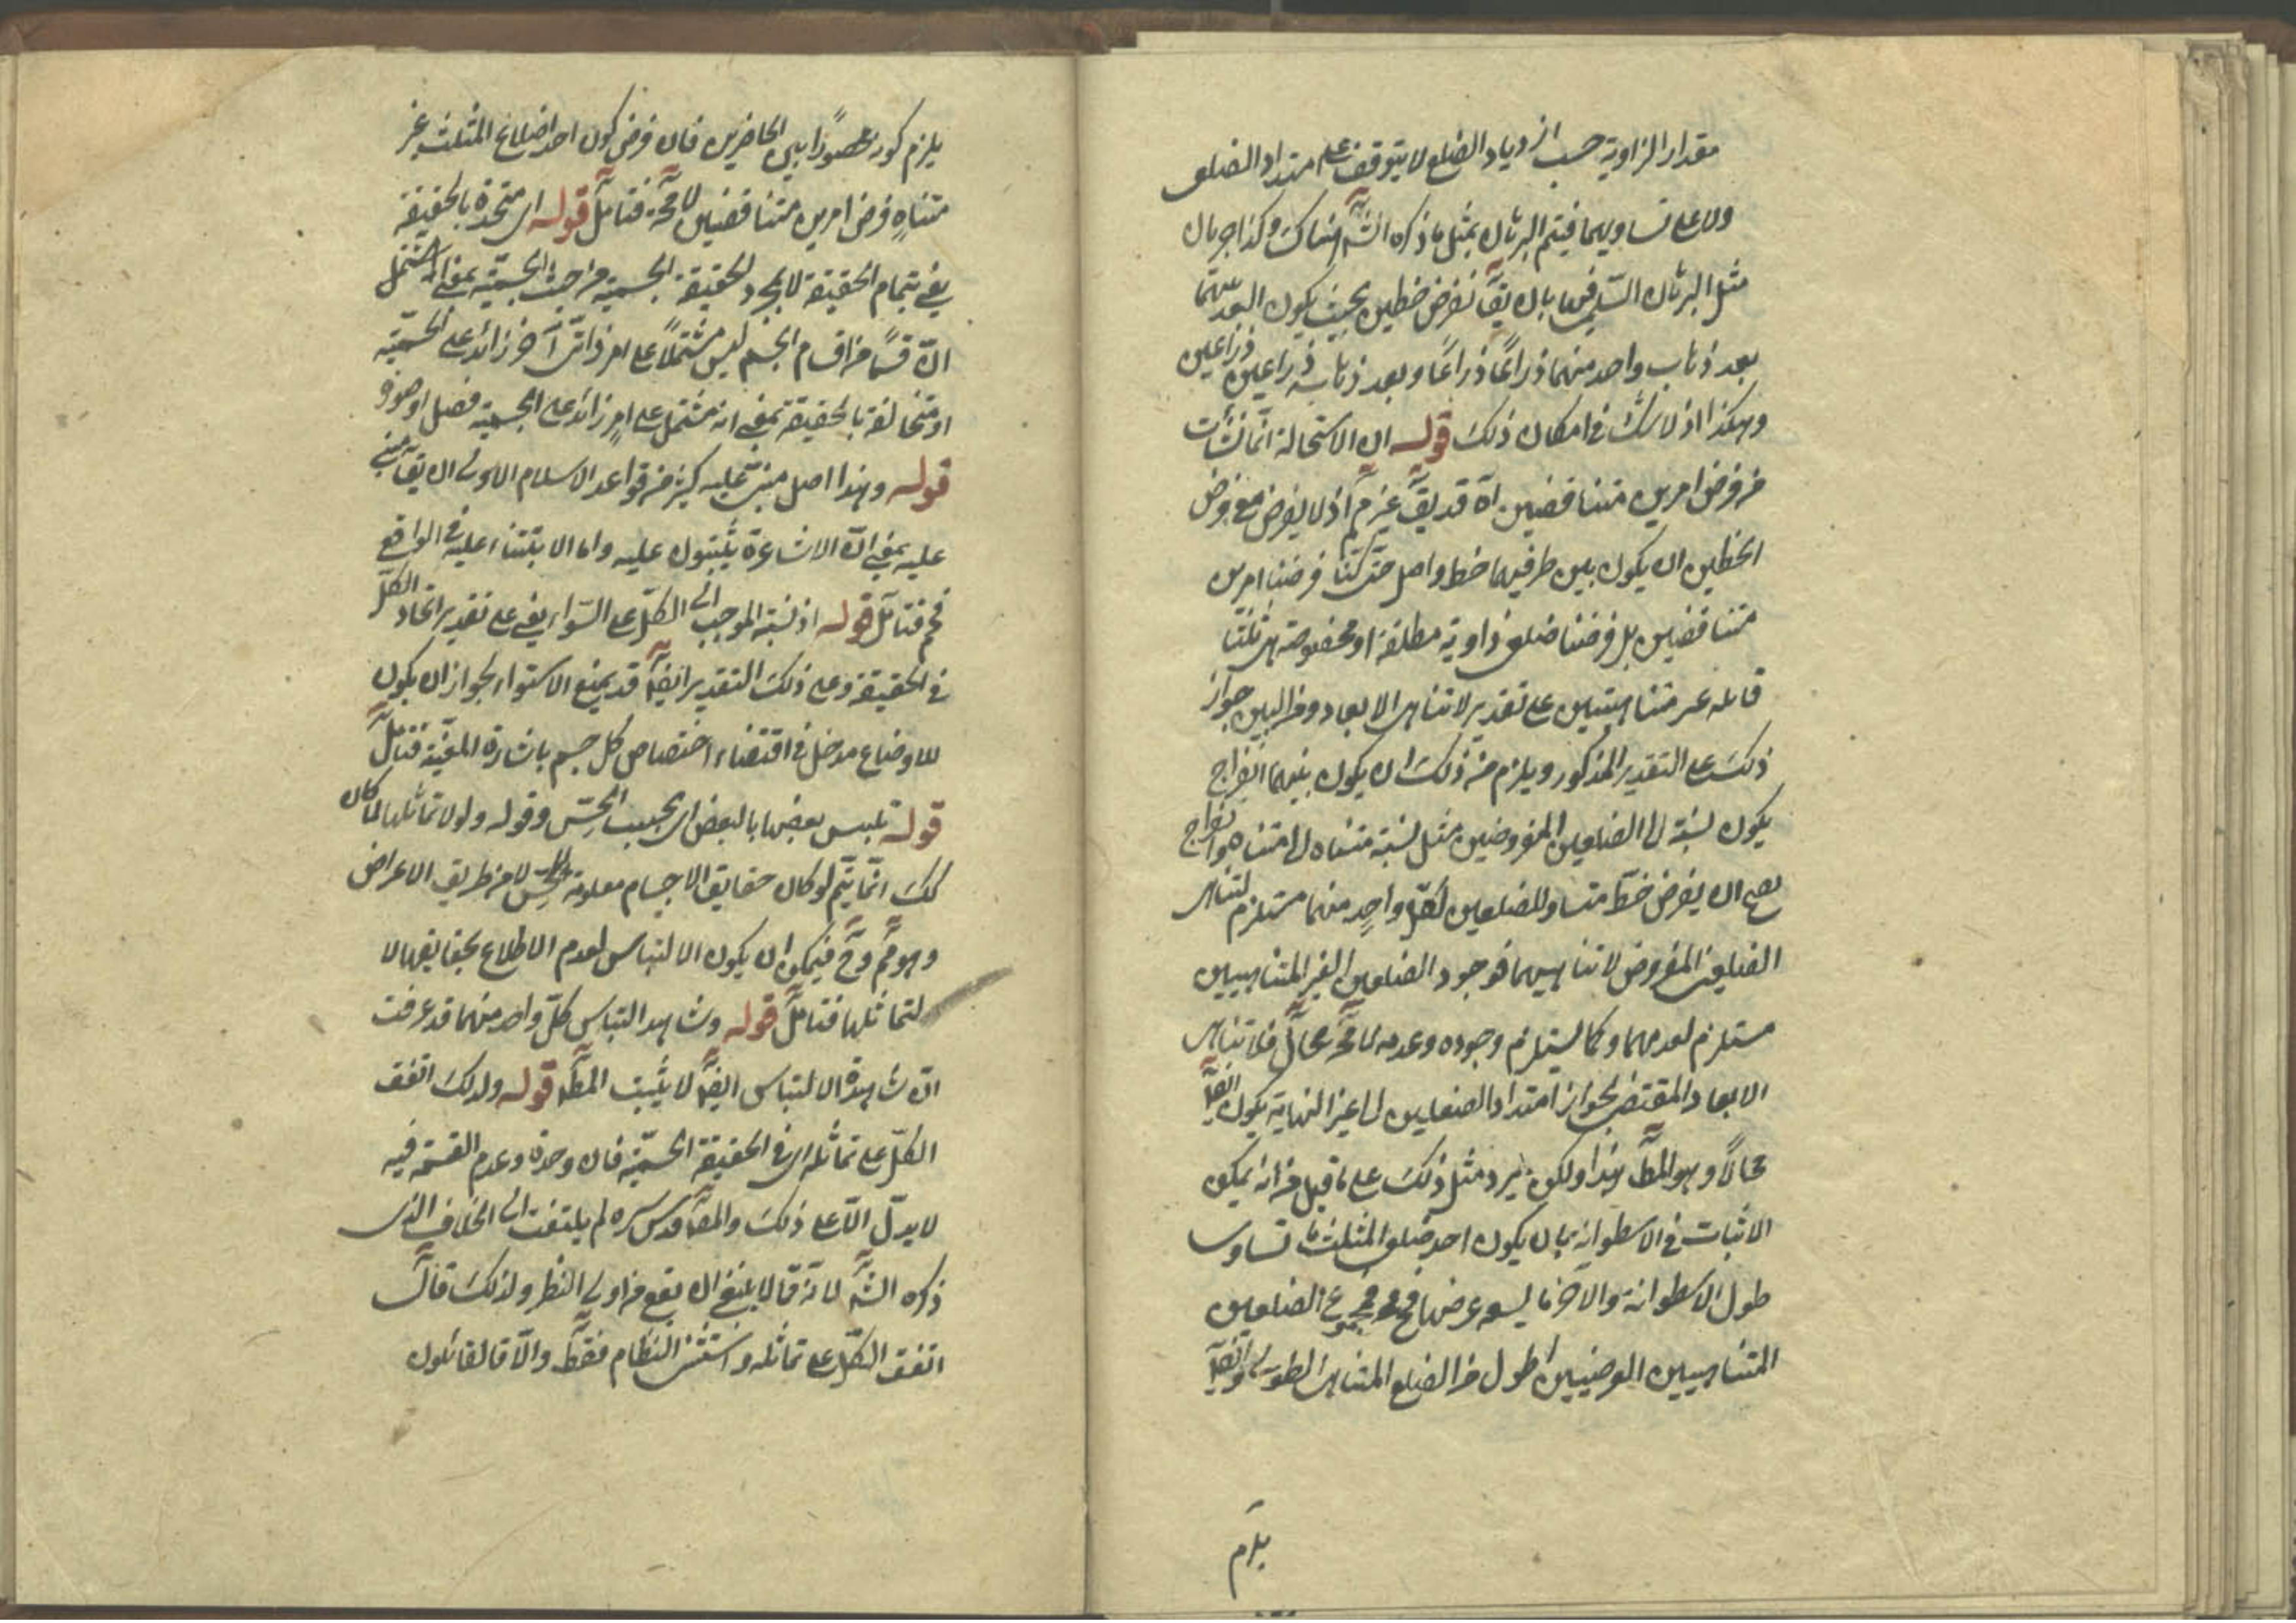 مقدار الزاوية حسب ازدياد الضلع لا يتوقف على امتداد الضلعى
ولا على تساويهما فيتم البرهان بمثل ما ذكره الشه هناك وكذا جريان
مثل البرهان السلمى فيها بان يقآ نفرض خطين بحيث يكون البعد بينهما
بعد ذهاب واحد منهما ذراعًا ذراعًا وبعد ذهابه ذراعين ذراعين
وهكذا اذ لا شك فى امكان ذلك قوله ان الاستحالة انما نشأت
من فرض امرين متناقضين اه قد يقآ غير مم اذ لا يفرض مع فرض
الخطين ان يكون بين طرفيهما خط واصل حتى كنا فرضنا امرين
متناقضين بل فرضنا ضلعى زاوية مطلقة او مخصوصة هى ثلثا
قائمه غير متناهيتين على تقدير لا تناهى الابعاد ومن البين جواز
ذلك على التقدير المذكور ويلزم من ذلك ان يكون بينهما انفراج
يكون نسبته الى الضلعين المفروضين مثل نسبة متناه الى متناه وانفراج
يصح ان يفرض خط متساو للضلعين لكل واحد منهما مستلزم لتناهى
الضلعين المفروض لا تناهيهما فوجود الضلعين الغير المتناهيين
مستلزم لعدمهما وكما يستلزم وجوده وعدمه محال فلا تناهى
الابعاد المقتضى لجواز امتداد الضلعين الى غير النهاية يكون ايضآ
محالاً وهو المطـ هذا ولكن يرد مثل ذلك على ما قيل من انه يمكن
الاثبات فى الاسطوانه بان يكون احد ضلعى المثلث ما تساوى
طول الاسطوانة والآخر ما يسعه عرضها فح مجموع الضلعين
المتناهيين العرضيين اطول من الضلع المتناهى الطولى وايضآ
يلزم
يلزم كونه محصورًا بين الحاضرين فان فرض كون احد اضلاع المثلث غير
متناهٍ فرض امرين متناقضين لا مح فتأمل قوله اى متحدة بالحقيقة
يعنى بتمام الحقيقة لا بمجرد الحقيقة الجسمية من حيث الجسميّة بمعنى انه يشتمل
انّ قسمًا من اقسام الجسم ليس مشتملاً على امر ذاتى آخر زائد على الجسميّة
او متخالفة بالحقيقة بمعنى انه مشتمل على امرٍ زائد على الجسمية فصل او صورة
قوله وهذا اصل مبتنى عليه كثير من قواعد الاسلام الاولى ان يقآ مبنى
عليه بمعنى انّ الاشاعرة يثبتون عليه واما الابتناء عليه فى الواقع
فمم فتأمل قوله اذ نسبة الموجب الى الكلّ على السّواء يعنى على تقدير اتحاد الكل
فى الحقيقة وعلى ذلك التقدير ايضآ قد يمنع الاستواء لجواز ان يكون
للاوضاع مدخل فى اقتضاء اختصاص كل جسم باشارة المعيّنة فتأمل
قوله تلبس بعضها بالبعض اى بحسب الحسّ وقوله ولولا تماثلها لما كان
كك انما يتم لو كان حقايق الاجسام معلومة بالحسّ لا من طريق الاعراض
وهو مم وح فيمكن ان يكون الالتباس لعدم الاطلاع بحقايقها لا
لتماثلها فتأمل قوله وشاهد التباس كلّ واحد منهما قد عرفت
ان شاهدة الالتباس ايضآ لا يثبت المطـ قوله ولذلك اتفق
الكلّ على تماثله اى فى الحقيقة الجسميّة فان وحدة وعدم القسمة فيه
لا يدلّ الّا على ذلك والمصـ قدس سره لم يلتفت الى الخلاف الذى
ذكره الشـ لانه قال لا ينبغى ان يقع من اولى النظر ولذلك قال
اتفق الكلّ على تماثله واستثنى النظام فقط والّا فالقائلون